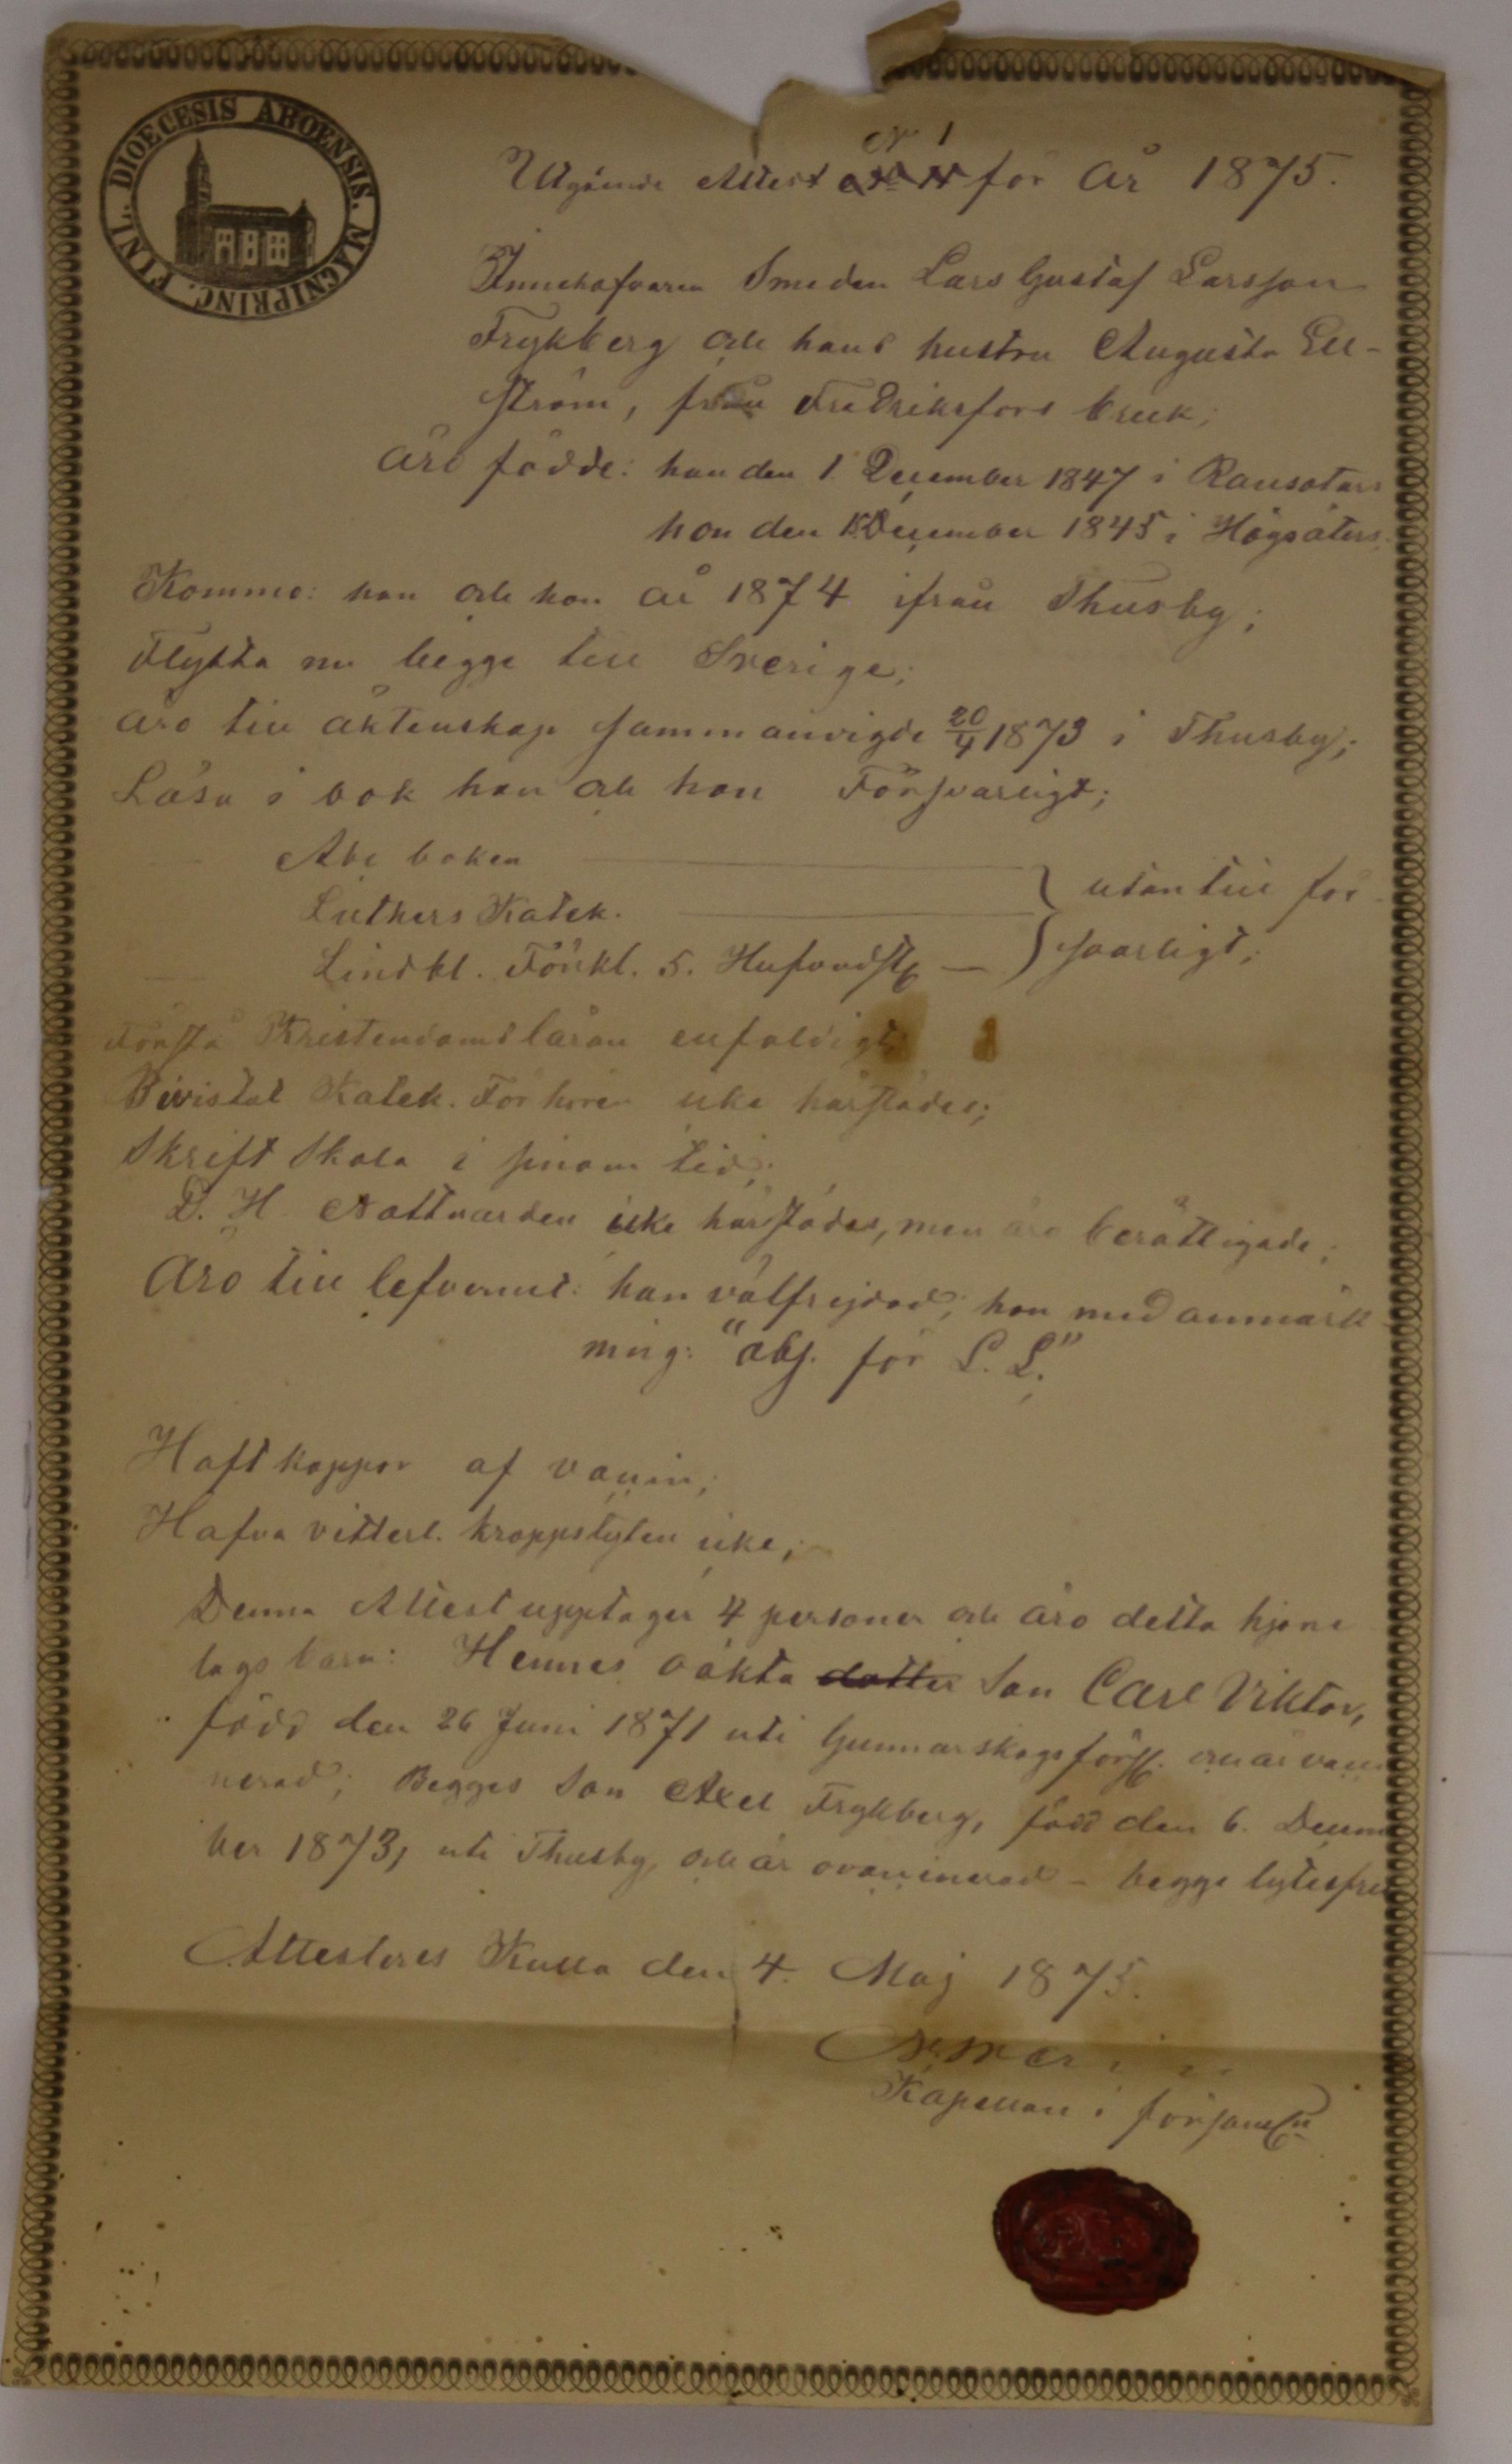 DIOECESIS ABOENSIS. MAGNIPRINC. FINL.
Utgående Attest N 1 för år 1875.
Innehafvaren Smeden Lars Gustaf Larsson
Frykberg och hans hustru Augusta Ell-
ström, från Fredriksfors bruk;
äro födde: han den 1 December 1847 i Ransäters
hon den December 1845 i Högsäters
Kommo: han och hon år 1874 ifrån Thusby;
Flytta nu begge till Sverige;
äro till äktenskap sammanvigde 20/4 1873 i Thusby;
Läsa i bok han och hon Försvarligt;
Abc boken
Luthers Katek. } utantill för-
Lindbl. Förkl. 5. Hufvudst — svarligt;
Förstå Kristendomsläran enfaldigt
Bivistat Katek. Förhören icke härstädes;
Skriftskola i sinom tid;
D. H. Nattvarden icke härstädes, men äro berättigade;
Äro till lefvernet: han välfrejdad; hon med anmärk-
ning: "abs. för L. L."
Haft koppor af vaccin;
Hafva vitterl. kroppslyten icke;
Denna Attest upptager 4 personer och äro detta hjone-
lags barn: Hennes oäkta dotter Son Carl Viktor,
född den 26 Juni 1871 uti Gunnarskogs förs. och är vacci-
nerad; Begges Son Axel Frykberg, född den 6. Decem
ber 1873, uti Thusby, och är ovaccinerad – begge lytesfria
Attesteres Kulla den 4. Maj 1875.
Kapellan i församln